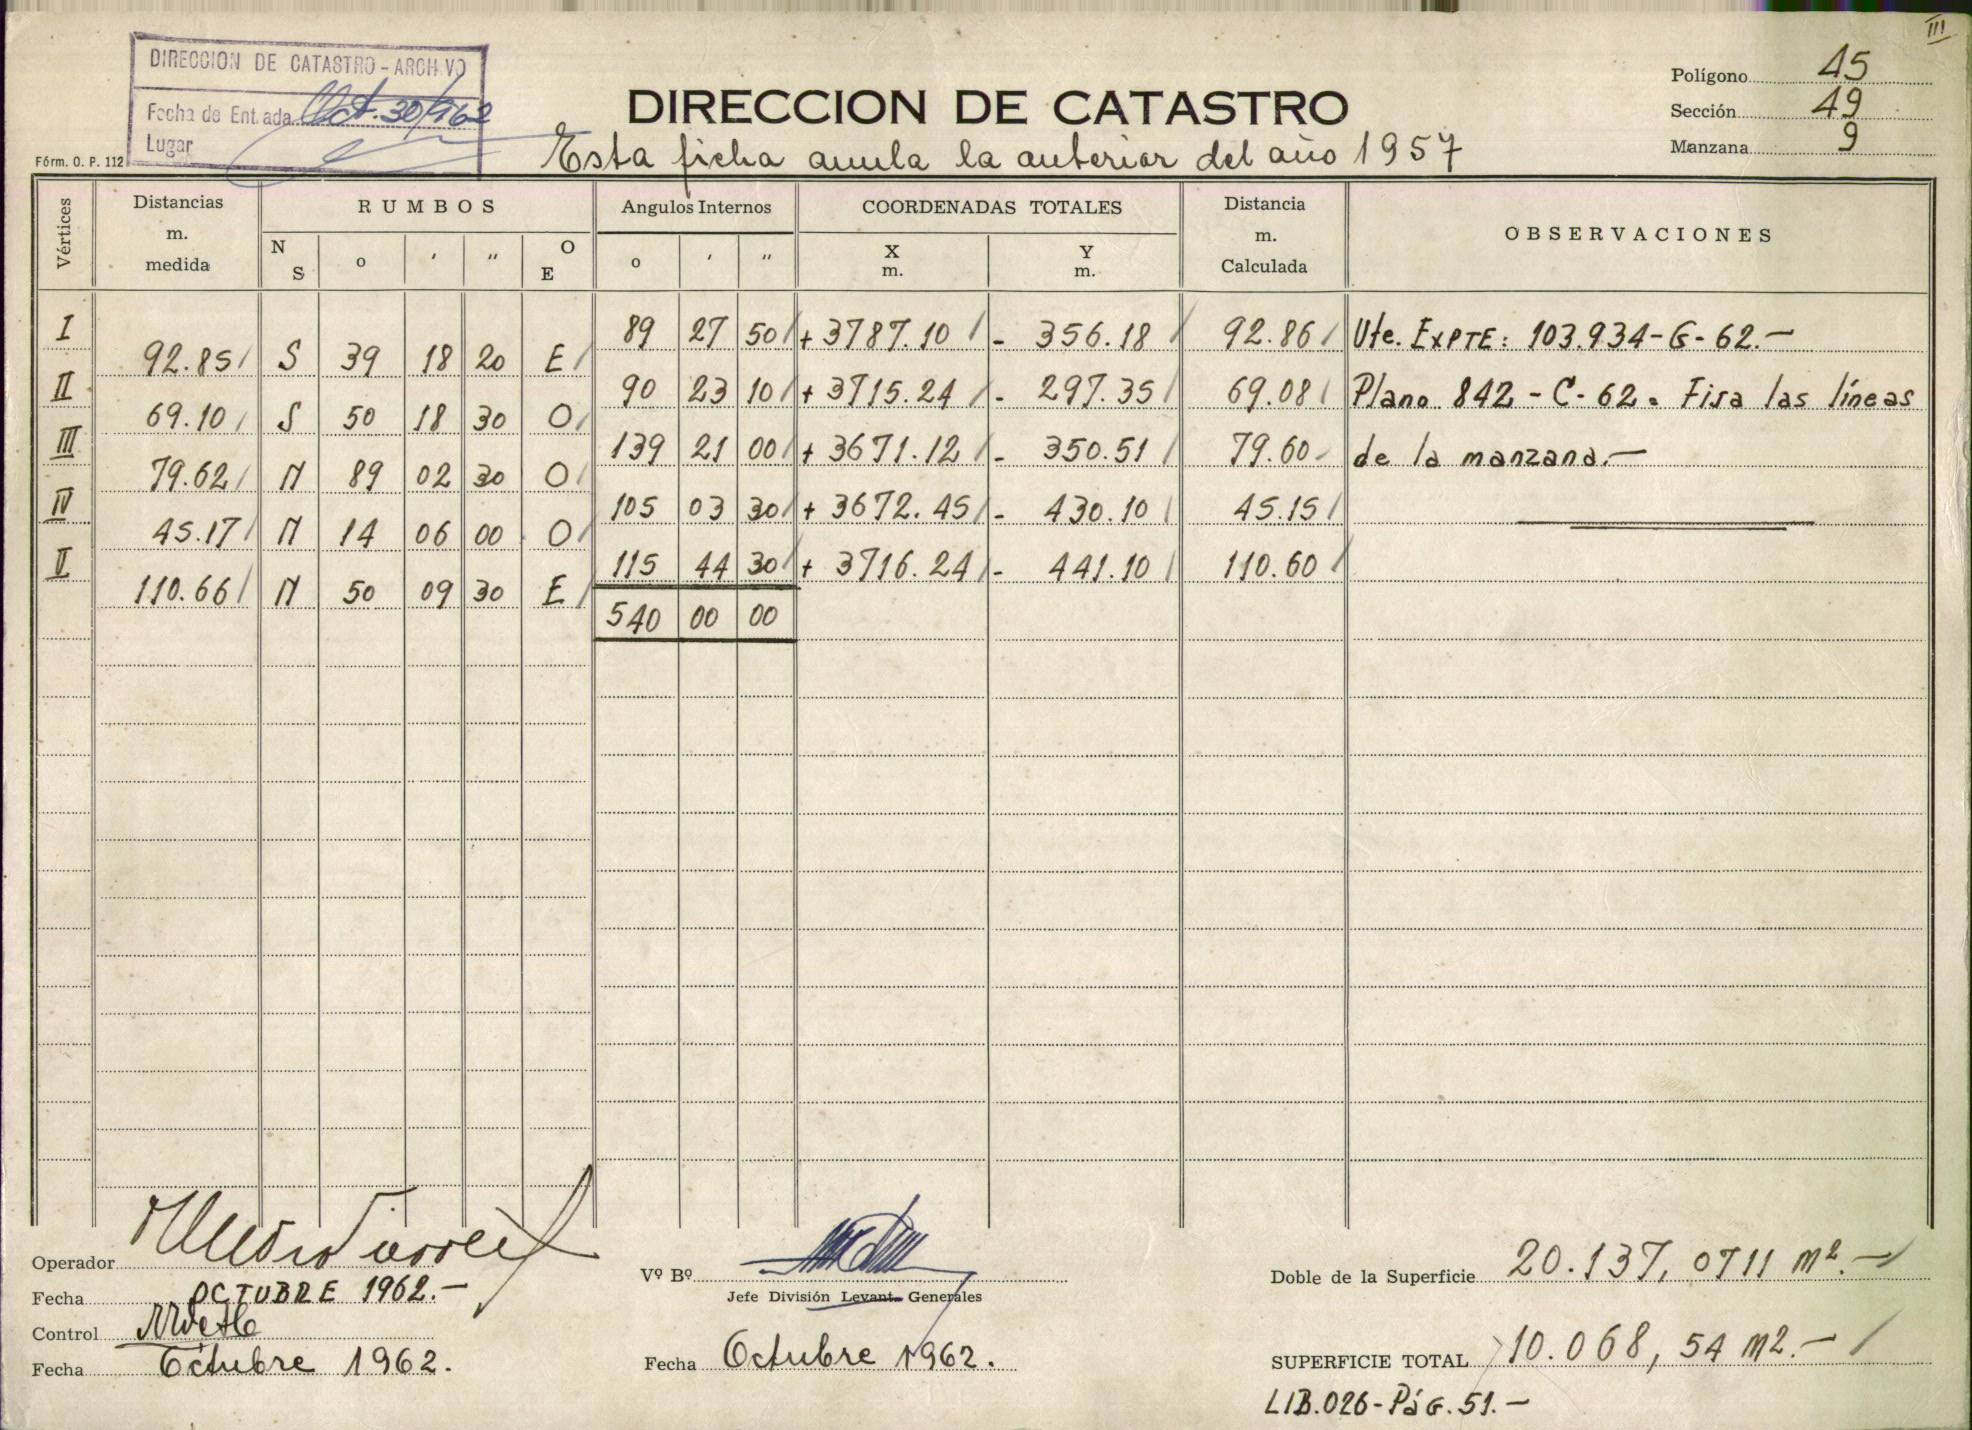 III
DIRECCION DE CATASTRO - ARCHIVO
Fecha de Entrada Oct. 30/962
Lugar
Fórm. O. P. 112
DIRECCION DE CATASTRO
Esta ficha anula la anterior del año 1957
Polígono 45
Sección 49
Manzana 9
Vértices Distancias m. medida RUMBOS N S o ' " O E Angulos Internos o ' " COORDENADAS TOTALES X m. Y m. Distancia m. Calculada OBSERVACIONES
I 89 27 50 + 3787.10 - 356.18 92.86 Ute. EXPTE: 103.934-G-62.-
92.85 S 39 18 20 E
II 90 23 10 + 3715.24 - 297.35 69.08 Plano 842-C-62. Fija las líneas
69.10 S 50 18 30 O
III 139 21 00 + 3671.12 - 350.51 79.60 de la manzana.-
79.62 N 89 02 30 O
IV 105 03 30 + 3672.45 - 430.10 45.15
45.17 N 14 06 00 O
V 115 44 30 + 3716.24 - 441.10 110.60
110.66 N 50 09 30 E
540 00 00
Operador
Fecha OCTUBRE 1962.-
Control
Fecha Octubre 1962.
Vº Bº
Jefe División Levant. Generales
Fecha Octubre 1962.
Doble de la Superficie 20.137,0711 m².-
SUPERFICIE TOTAL 10.068,54 m2.-
LIB.026-PáG.51.-